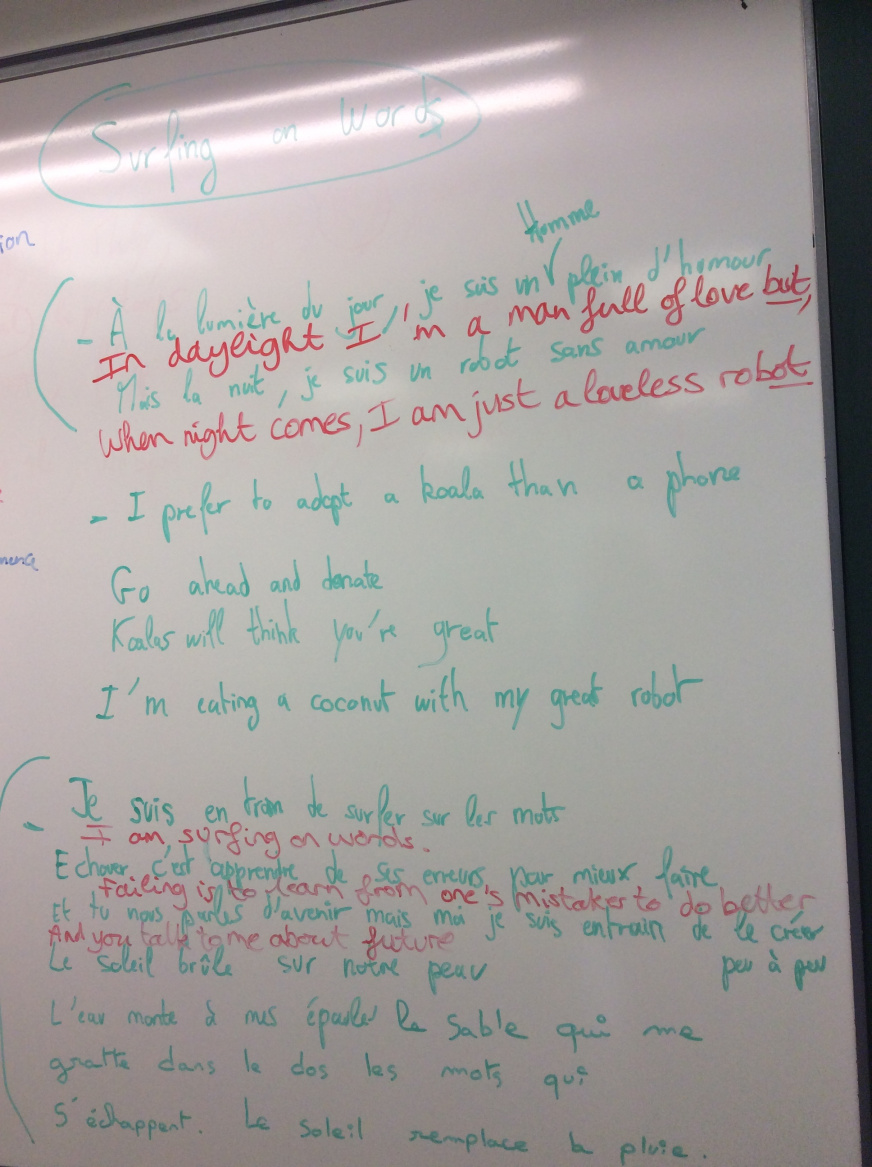 Surfing on Words
ion
Homme
- À la lumière du jour, je suis un √ plein d'humour
In daylight I'm a man full of love but,
Mais la nuit, je suis un robot sans amour
When night comes, I am just a loveless robot
- I prefer to adopt a koala than a phone
Go ahead and donate
Koalas will think you're great
I'm eating a coconut with my great robot
- Je suis en train de surfer sur les mots
I am surfing on words.
Echouer, c'est apprendre de ses erreurs pour mieux faire
Failing is to learn from one's mistakes to do better
Et tu nous parles d'avenir mais moi je suis entrain de le créer
And you talk to me about future
peu à peu
Le soleil brûle sur notre peau
L'eau monte à mes épaules le sable qui me
gratte dans le dos les mots qui
s'échappent. Le soleil remplace la pluie.